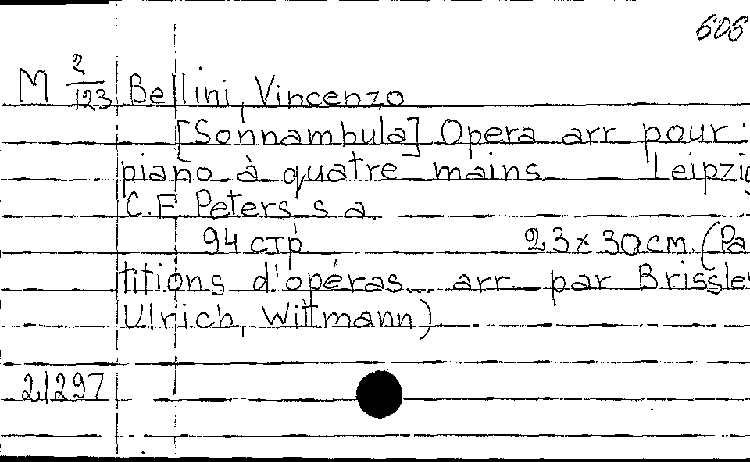 606
M 2/123 Bellini, Vincenzo
[Sonnambula] Opera arr pour
piano à quatre mains Leipzig
C.F. Peters s a
94 стр 23 x 30 cm. (Pa
titions d'opéras arr par Brissler
Ulrich, Wittmann)
21297